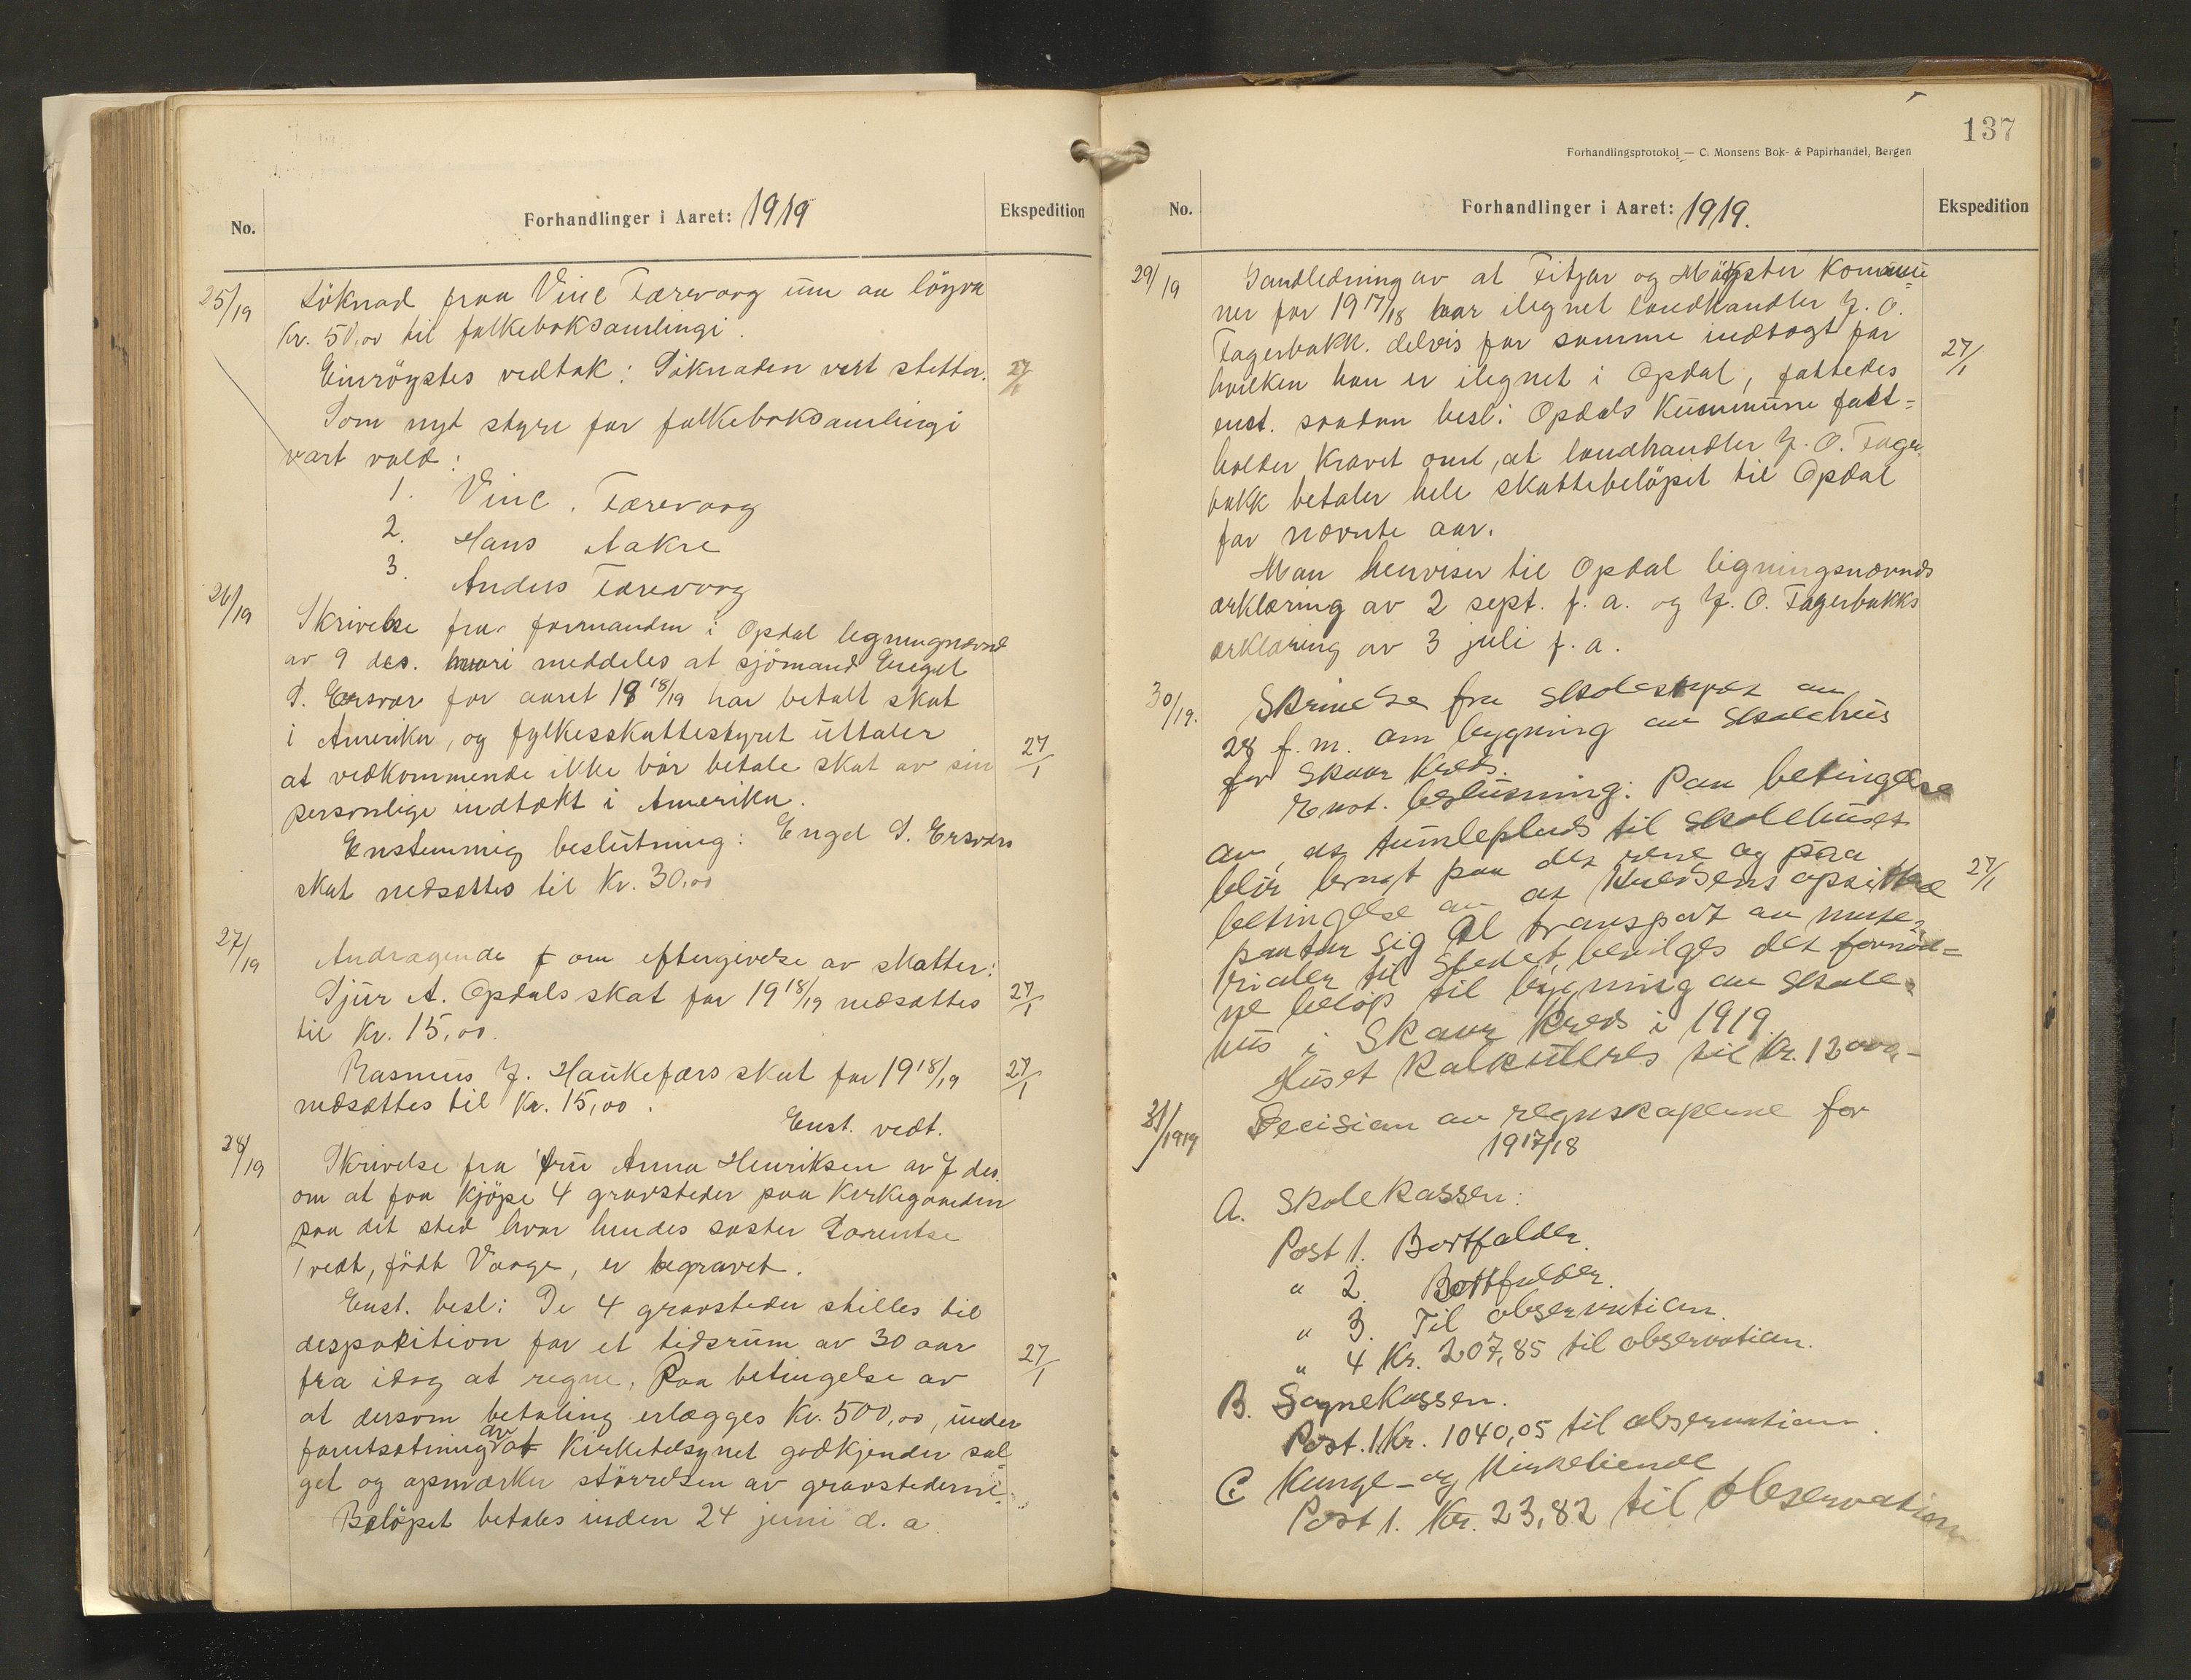 No.
Forhandlinger i Aaret: 1919
Ekspedition
25/19
Söknad fraa Vinc Færevaag um aa löyva
Kr. 50,00 til folkeboksamlingi.
Einröystes vedtak: Söknaden vert stetta.
27/1
Som nyt styre for folkeboksamlingi
vart vald:
1. Vinc. Færevaag
2. Hans Aakre
3. Anders Færevaag
26/19
Skrivelse fra formanden i Opdal ligningsnævnd
av 9 des. hvori meddeles at sjömand Engel
S. Ersvær for aaret 1918/19 har betalt skat
i Amerika, og fylkesskattestyret uttaler
at vedkommende ikke bör betale skat av sin
27/1
personlige indtækt i Amerika.
Enstemmig beslutning: Engel S. Ersværs
skat nedsættes til Kr. 30,00
27/19
Andragende om eftergivelse av skatter:
Sjur A. Opdals skat for 1918/19 nedsættes
27/1
til Kr. 15,00.
Rasmus J. Haukefærs skat for 1918/19
27/1
nedsættes til Kr. 15,00.
Enst. vedt.
28/19
Skrivelse fra fru Anna Henriksen av 7 des.
om at faa kjöpe 4 gravsteder paa Kirkegaarden
paa det sted hvor hendes søster Dorentse
Tvedt, födt Vaage, er begravet.
Enst. besl: De 4 gravsteder stilles til
desposition for et tidsrum av 30 aar
27/1
fra idag at regne, Paa betingelse av
at dersom betaling erlægges Kr. 500,00, under
forutsætning av at Kirketilsynet godkjender sal-
get og opmærker störrelsen av gravstederne.
Belöpet betales inden 24 juni d. a.
137
Forhandlingsprotokol — C. Monsens Bok- & Papirhandel, Bergen
No.
Forhandlinger i Aaret: 1919.
Ekspedition
29/19
I andledning av at Fitjar og Mögster Kommu=
ner for 1917/18 har ilegnet landhandler J. O.
Fagerbakk. delvis for samme indtægt for
27/1
hvilken han er ilegnet i Opdal, fattedes
enst. saadan besl: Opdals Kummune fast=
holder kravet om, at landhandler J. O. Fager
bakk betaler hele skattebelöpet til Opdal
for nævnte aar.
Man henviser til Opdal ligningsnævnds
ærklæring av 2 sept. f. a. og J. O. Fagerbakks
ærklæring av 3 juli f. a.
30/19.
Skrivelse fra skolestyret av
28 f. m. om bygning av skolehus
for Skaar Kreds.
Enst. beslutning: Paa betingelse
av, at tumleplads til skolehuset
blir bragt paa det rene og paa
27/1
betingelse av at kredsens opsittere
paatar sig al transport av mate=
rialer til stedet, bevilges det fornöd=
ne belöp til bygning av skole=
hus i Skaar Kreds i 1919.
Huset kalkuleres til Kr. 12000,-
31/1919
Decision av regnskaperne for
1917/18
A. Skolekassen:
Post 1. Bortfalder.
" 2. Bortfalder.
" 3. Til observation.
" 4 Kr. 207,85 til observation.
B. Sognekassen.
Post. 1 Kr. 1040,05 til observation.
C. Konge- og Kirketiende
Post 1. Kr. 23,82 til observation